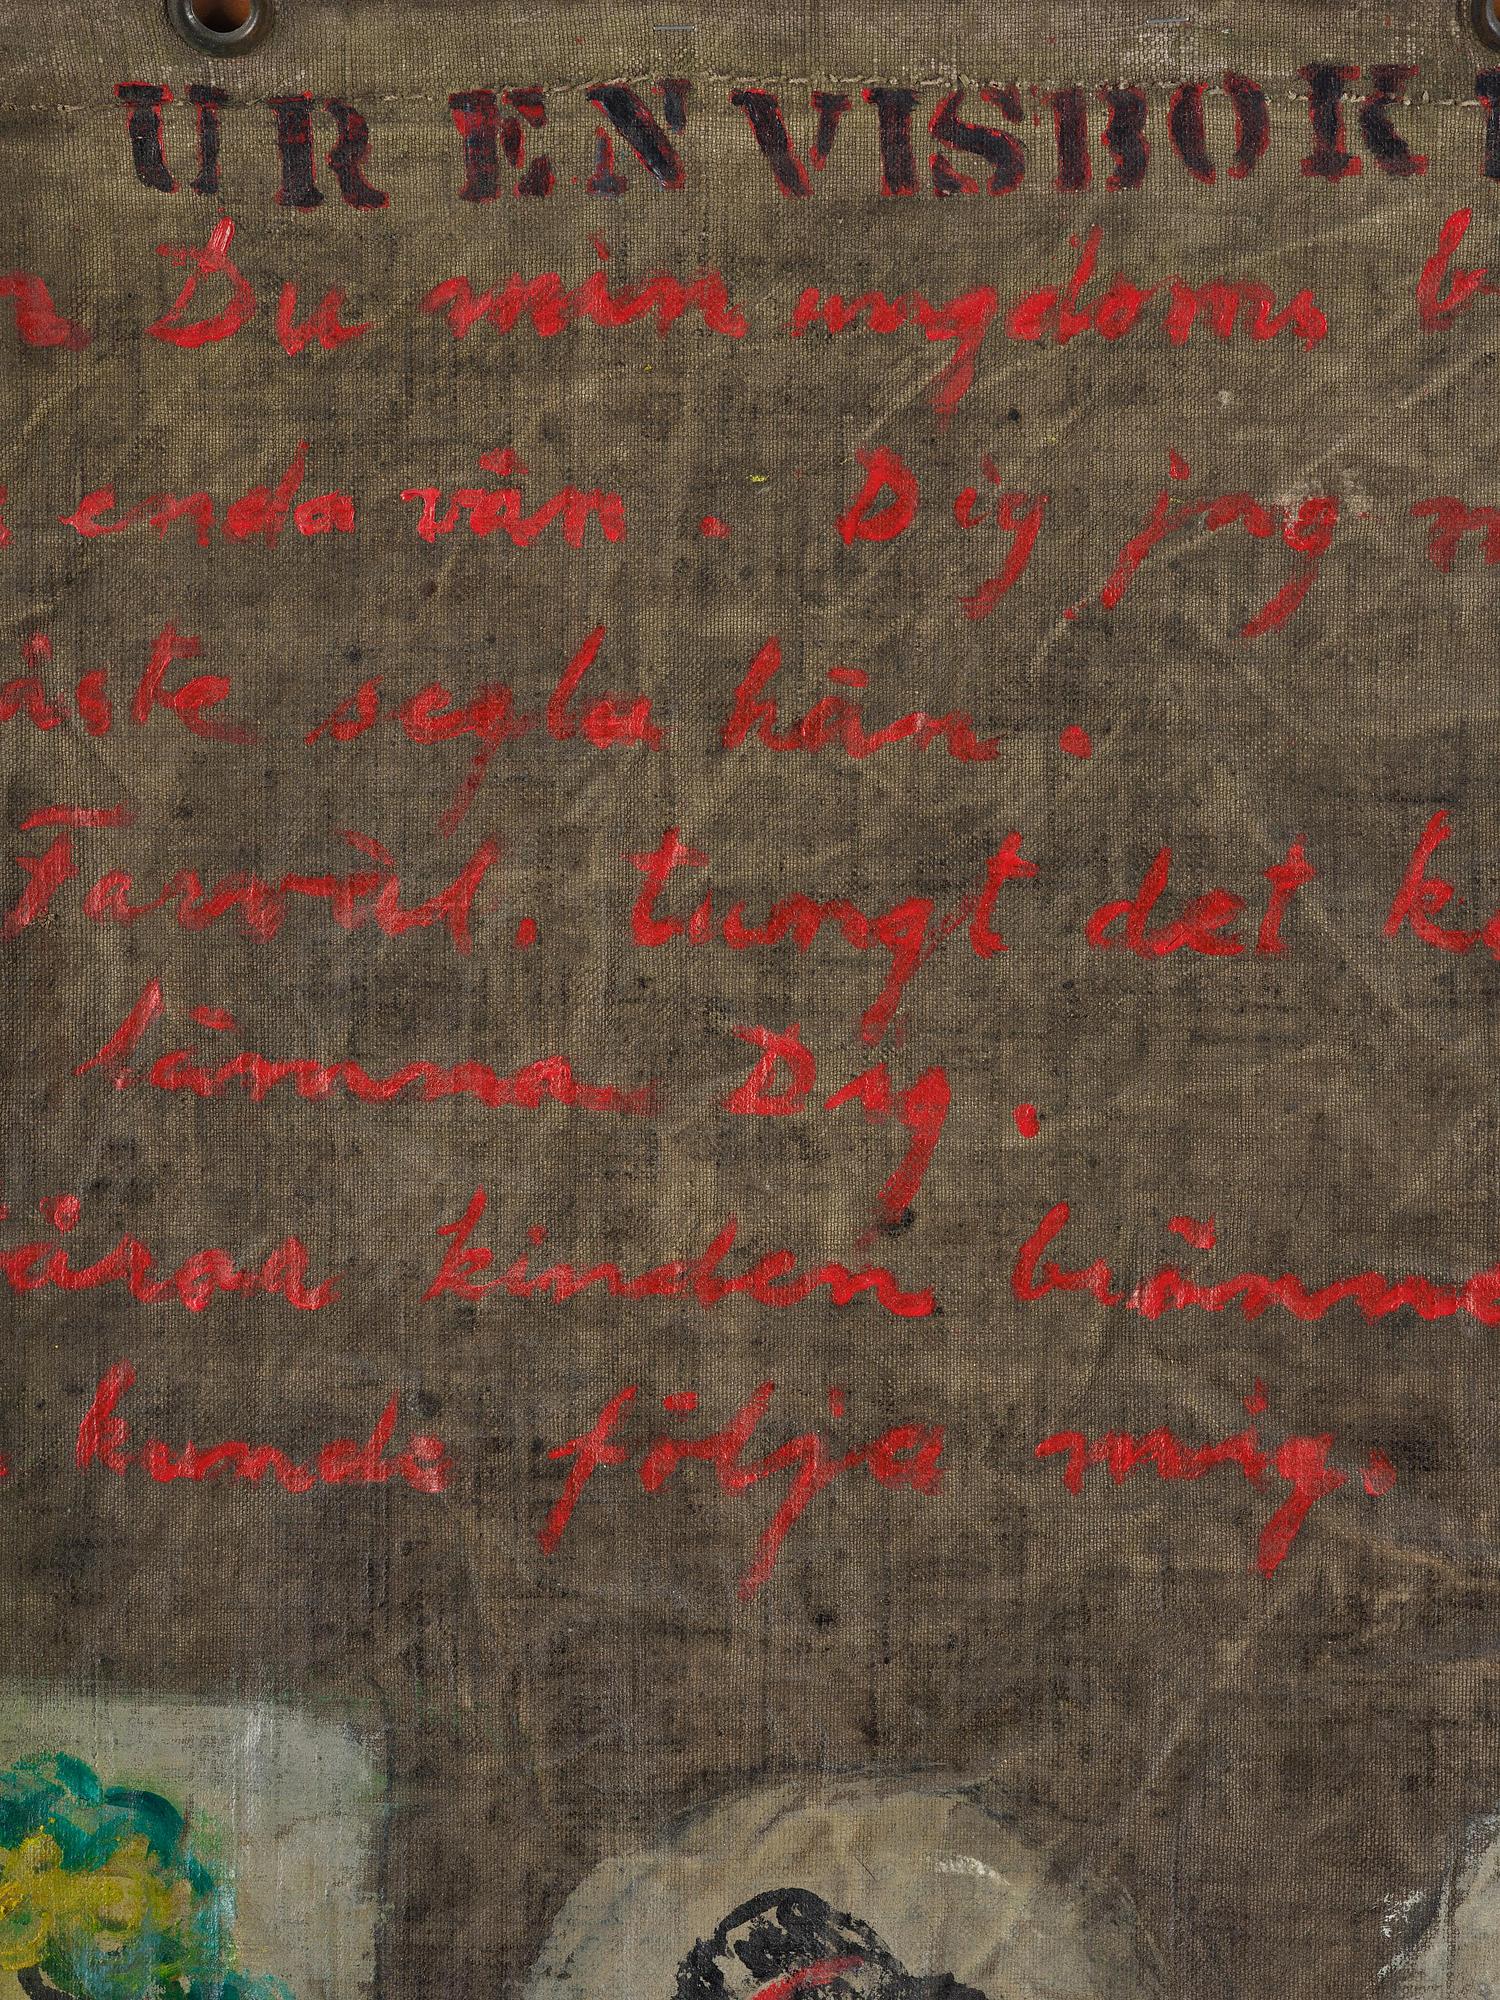 UR EN VISBOK
Du min ungdoms
enda vän. Dig jag
segla hän.
Farväl, tungt det
lämna Dig.
kinden bränne
kunde följa mig.